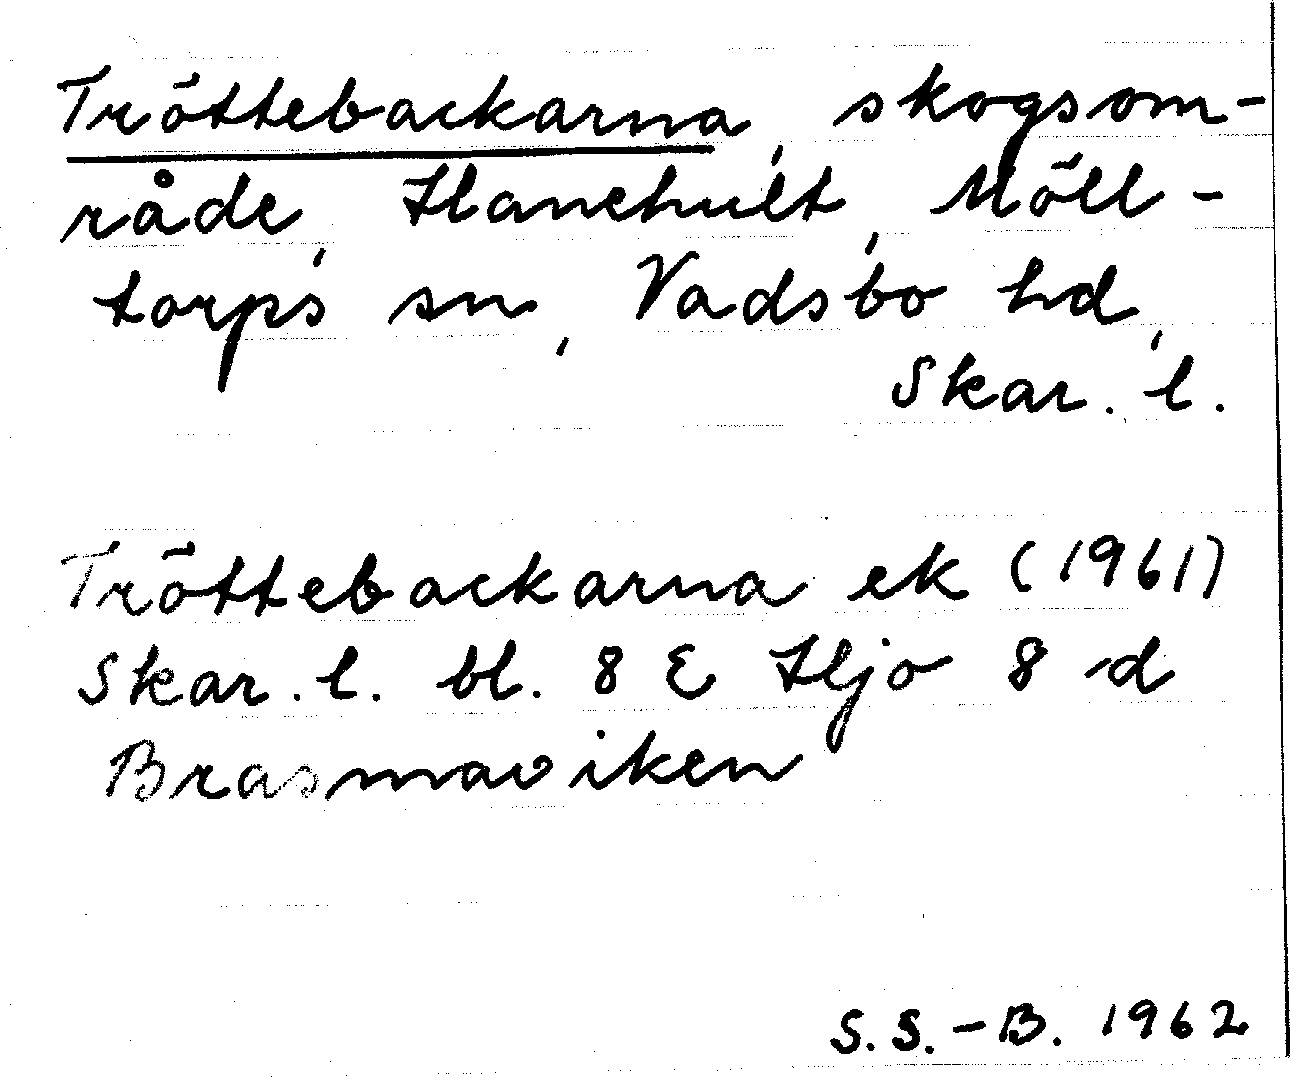 Tröttebackarna, skogsom-
råde, Hanehult, Möll-
torps sn, Vadsbo hd,
Skar. l.
Tröttebackarna ek (1961)
Skar. l. bl. 8 E Hjo 8 d
Brasmaviken
S. S.-B. 1962